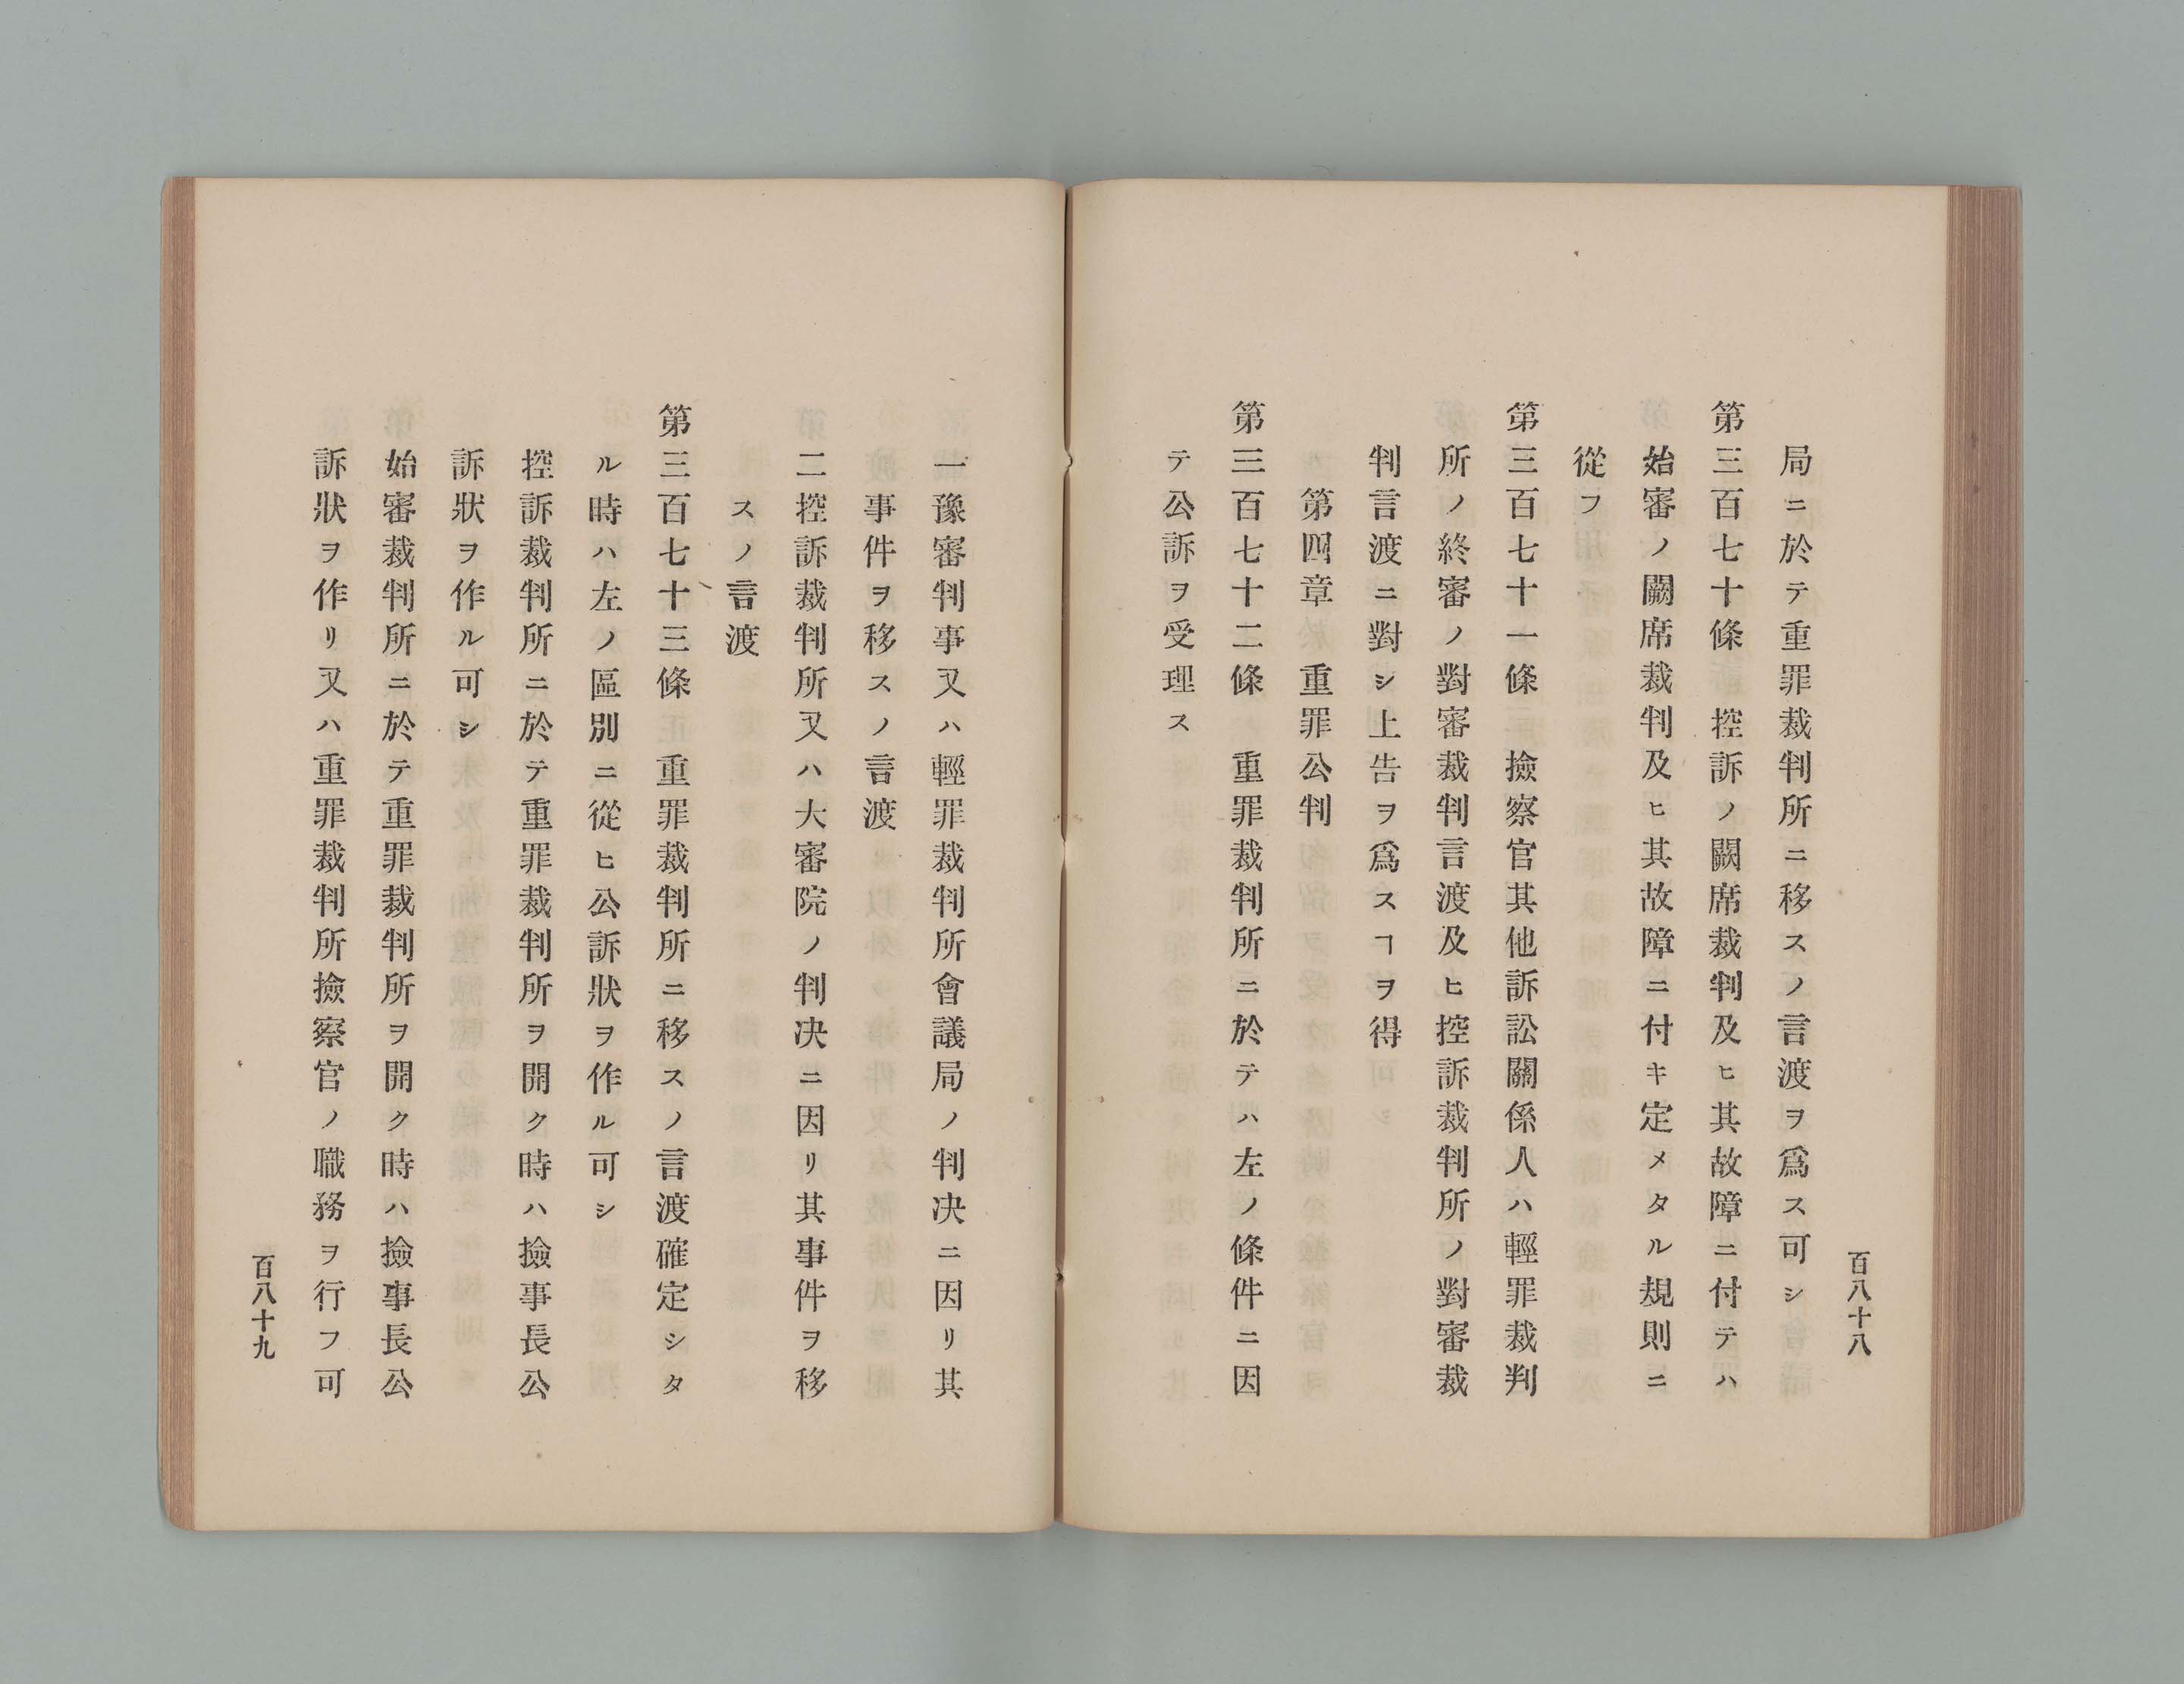 百八十八
局ニ於テ重罪裁判所ニ移スノ言渡ヲ爲ス可シ
第三百七十條　控訴ノ闕席裁判及ヒ其故障ニ付テハ
始審ノ闕席裁判及ヒ其故障ニ付キ定メタル規則ニ
從フ
第三百七十一條　撿察官其他訴訟關係人ハ輕罪裁判
所ノ終審ノ對審裁判言渡及ヒ控訴裁判所ノ對審裁
判言渡ニ對シ上告ヲ爲スヿヲ得
第四章　重罪公判
第三百七十二條　重罪裁判所ニ於テハ左ノ條件ニ因
テ公訴ヲ受理ス
一豫審判事又ハ輕罪裁判所會議局ノ判决ニ因リ其
事件ヲ移スノ言渡
二控訴裁判所又ハ大審院ノ判决ニ因リ其事件ヲ移
スノ言渡
第三百七十三條　重罪裁判所ニ移スノ言渡確定シタ
ル時ハ左ノ區別ニ從ヒ公訴狀ヲ作ル可シ
控訴裁判所ニ於テ重罪裁判所ヲ開ク時ハ撿事長公
訴狀ヲ作ル可シ
始審裁判所ニ於テ重罪裁判所ヲ開ク時ハ撿事長公
訴狀ヲ作リ又ハ重罪裁判所撿察官ノ職務ヲ行フ可
百八十九